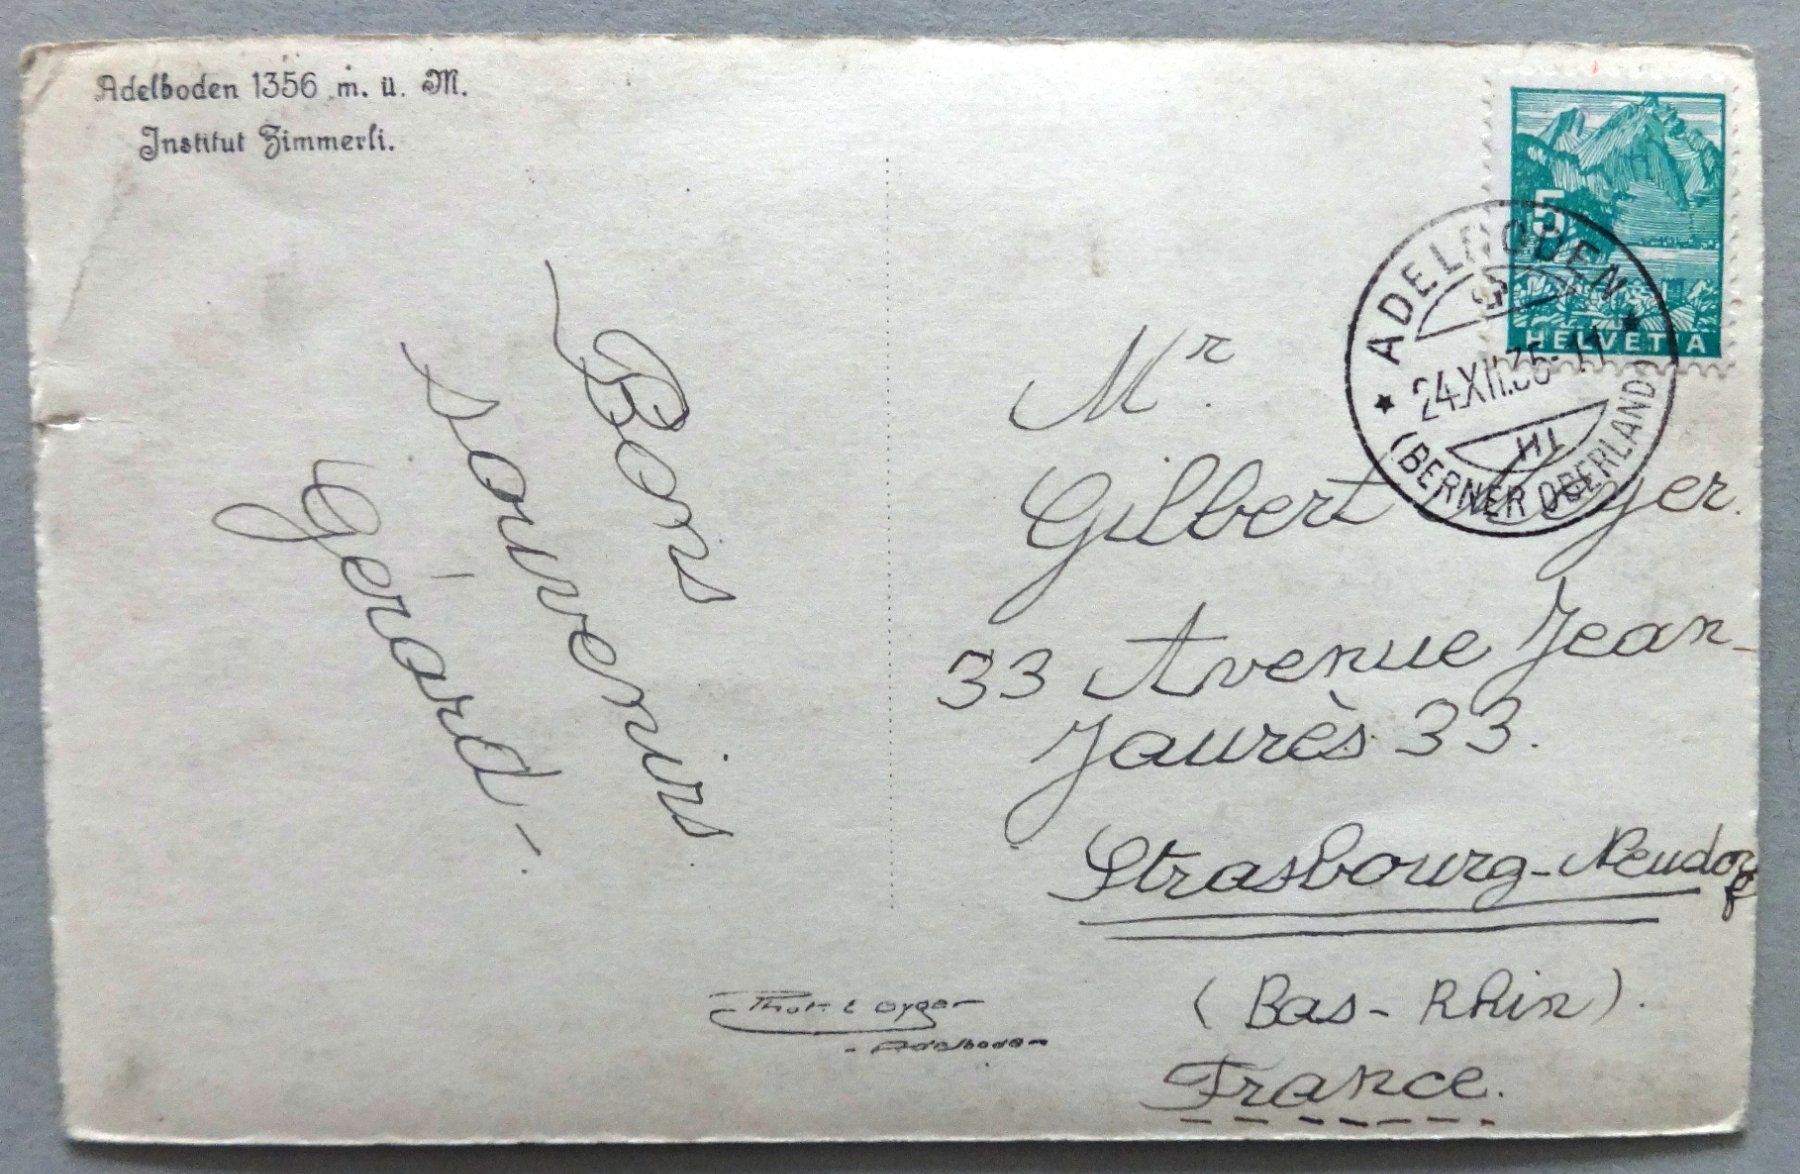 Adelboden 1356 m. ü. M.
Institut Zimmerli.
Bons
souvenirs
Gérard.
5
HELVETIA
ADELBODEN
24.XII.35
(BERNER OBERLAND)
Mr.
Gilbert
33 Avenue Jean-
Jaurès 33.
Strasbourg-Neudorf
(Bas-Rhin).
France.
Phot.
Adelboden